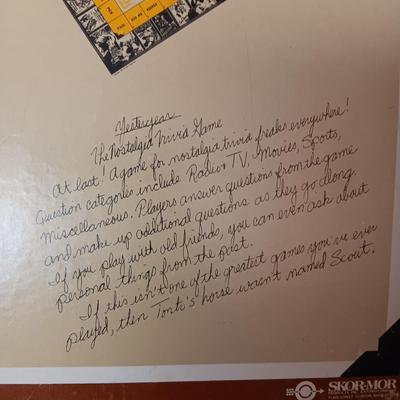 Yesteryear
The Nostalgia Trivia Game
At last! A game for nostalgia trivia freaks everywhere!
Question categories include Radio & TV, Movies, Sports,
Miscellaneous. Players answer questions from the game
and make up additional questions as they go along.
If you play with old friends, you can even ask about
personal things from the past.
If this isn't one of the greatest games you've ever
played, then Tonto's horse wasn't named Scout.
SKOR-MOR